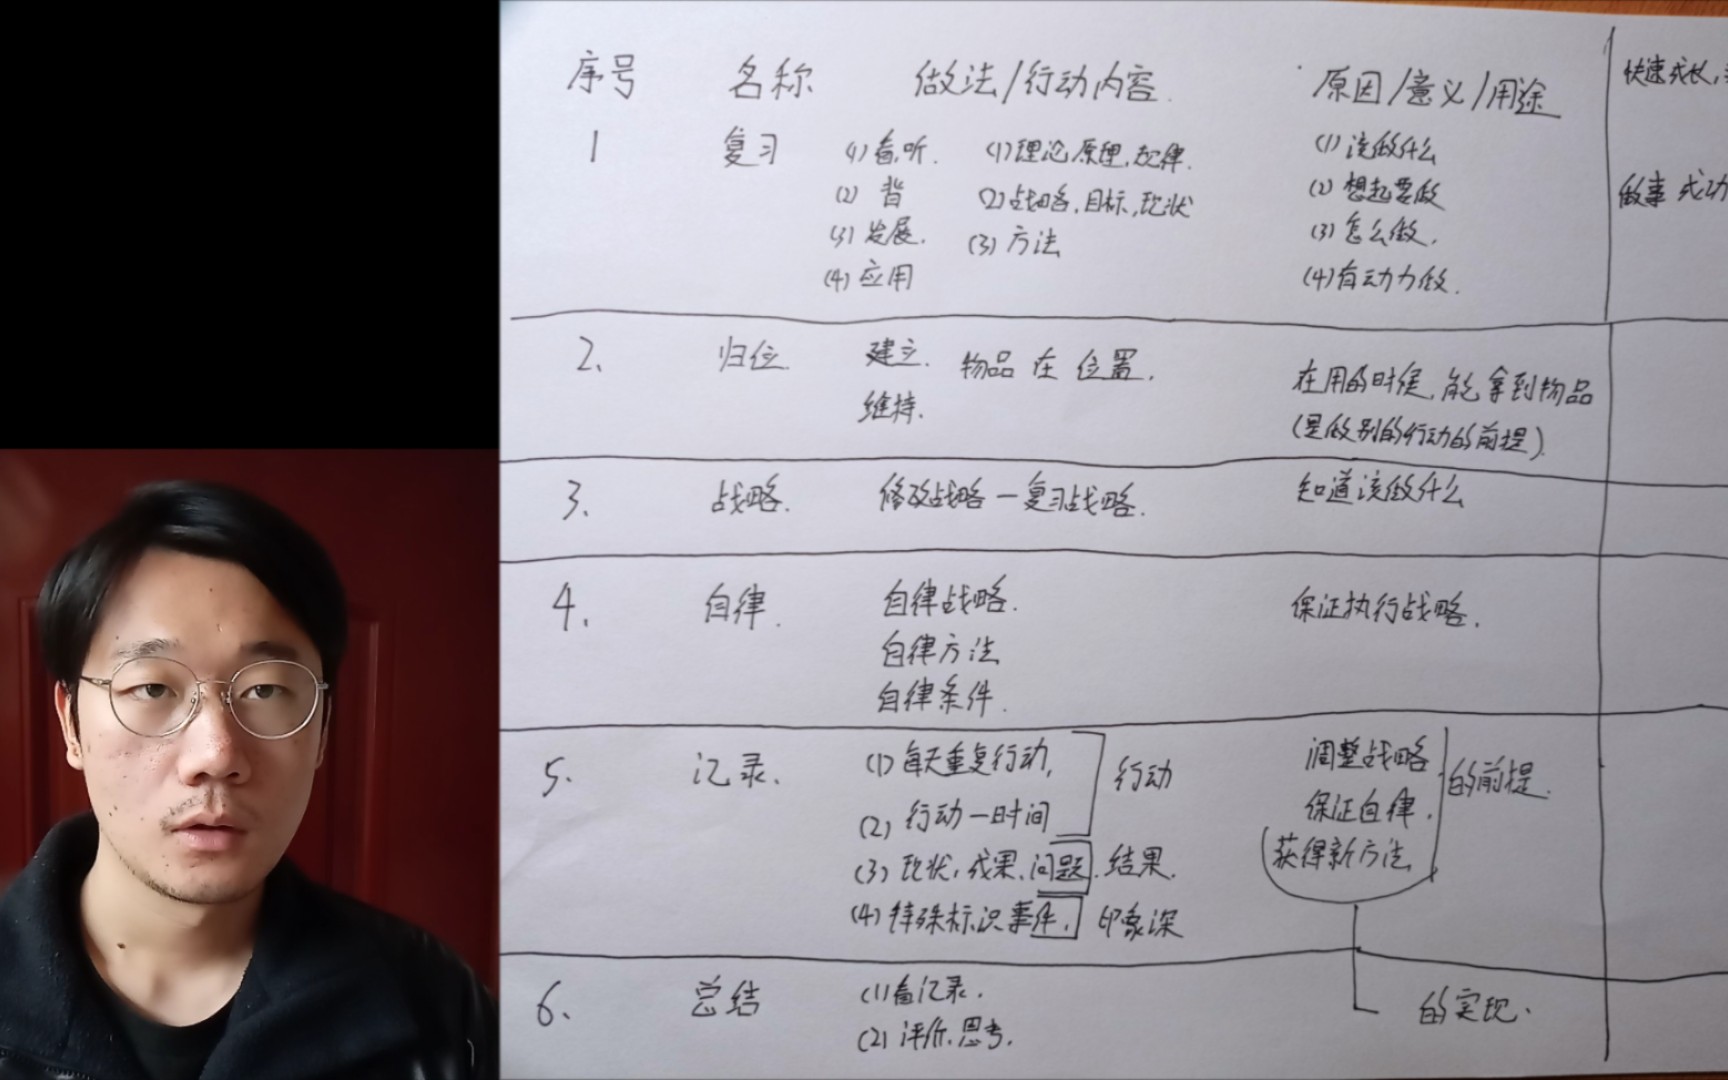 序号 名称 做法/行动内容. 原因/意义/用途 快速成长,
1 复习 (1)看,听. (1)理论,原理,规律. (1)该做什么
(2) 背 (2)战略,目标,现状 (2)想起要做 做事 成功
(3)发展. (3)方法 (3)怎么做.
(4)应用 (4)有动力做.
2. 归位. 建立. 物品 在 位置. 在用的时候,能拿到物品
维持. (是做别的行动的前提).
3. 战略. 修改战略一复习战略. 知道该做什么
4. 自律. 自律战略. 保证执行战略.
自律方法
自律条件.
5. 记录. (1)每天重复行动, 行动 调整战略 的前提.
(2)行动一时间 保证自律.
(3)现状,成果,问题. 结果. 获得新方法
(4)特殊标识事件. 印象深
6. 总结 (1)看记录. 的实现.
(2)评价.思考.